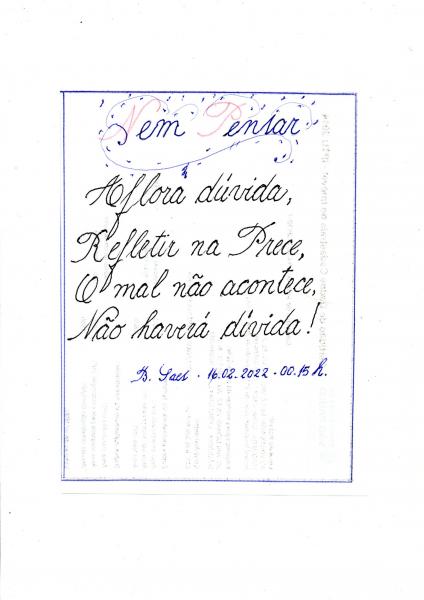 Nem Pensar
Aflora dúvida,
Refletir na Prece,
O mal não acontece,
Não haverá dívida!
16.02.2022 - 00.15 h.